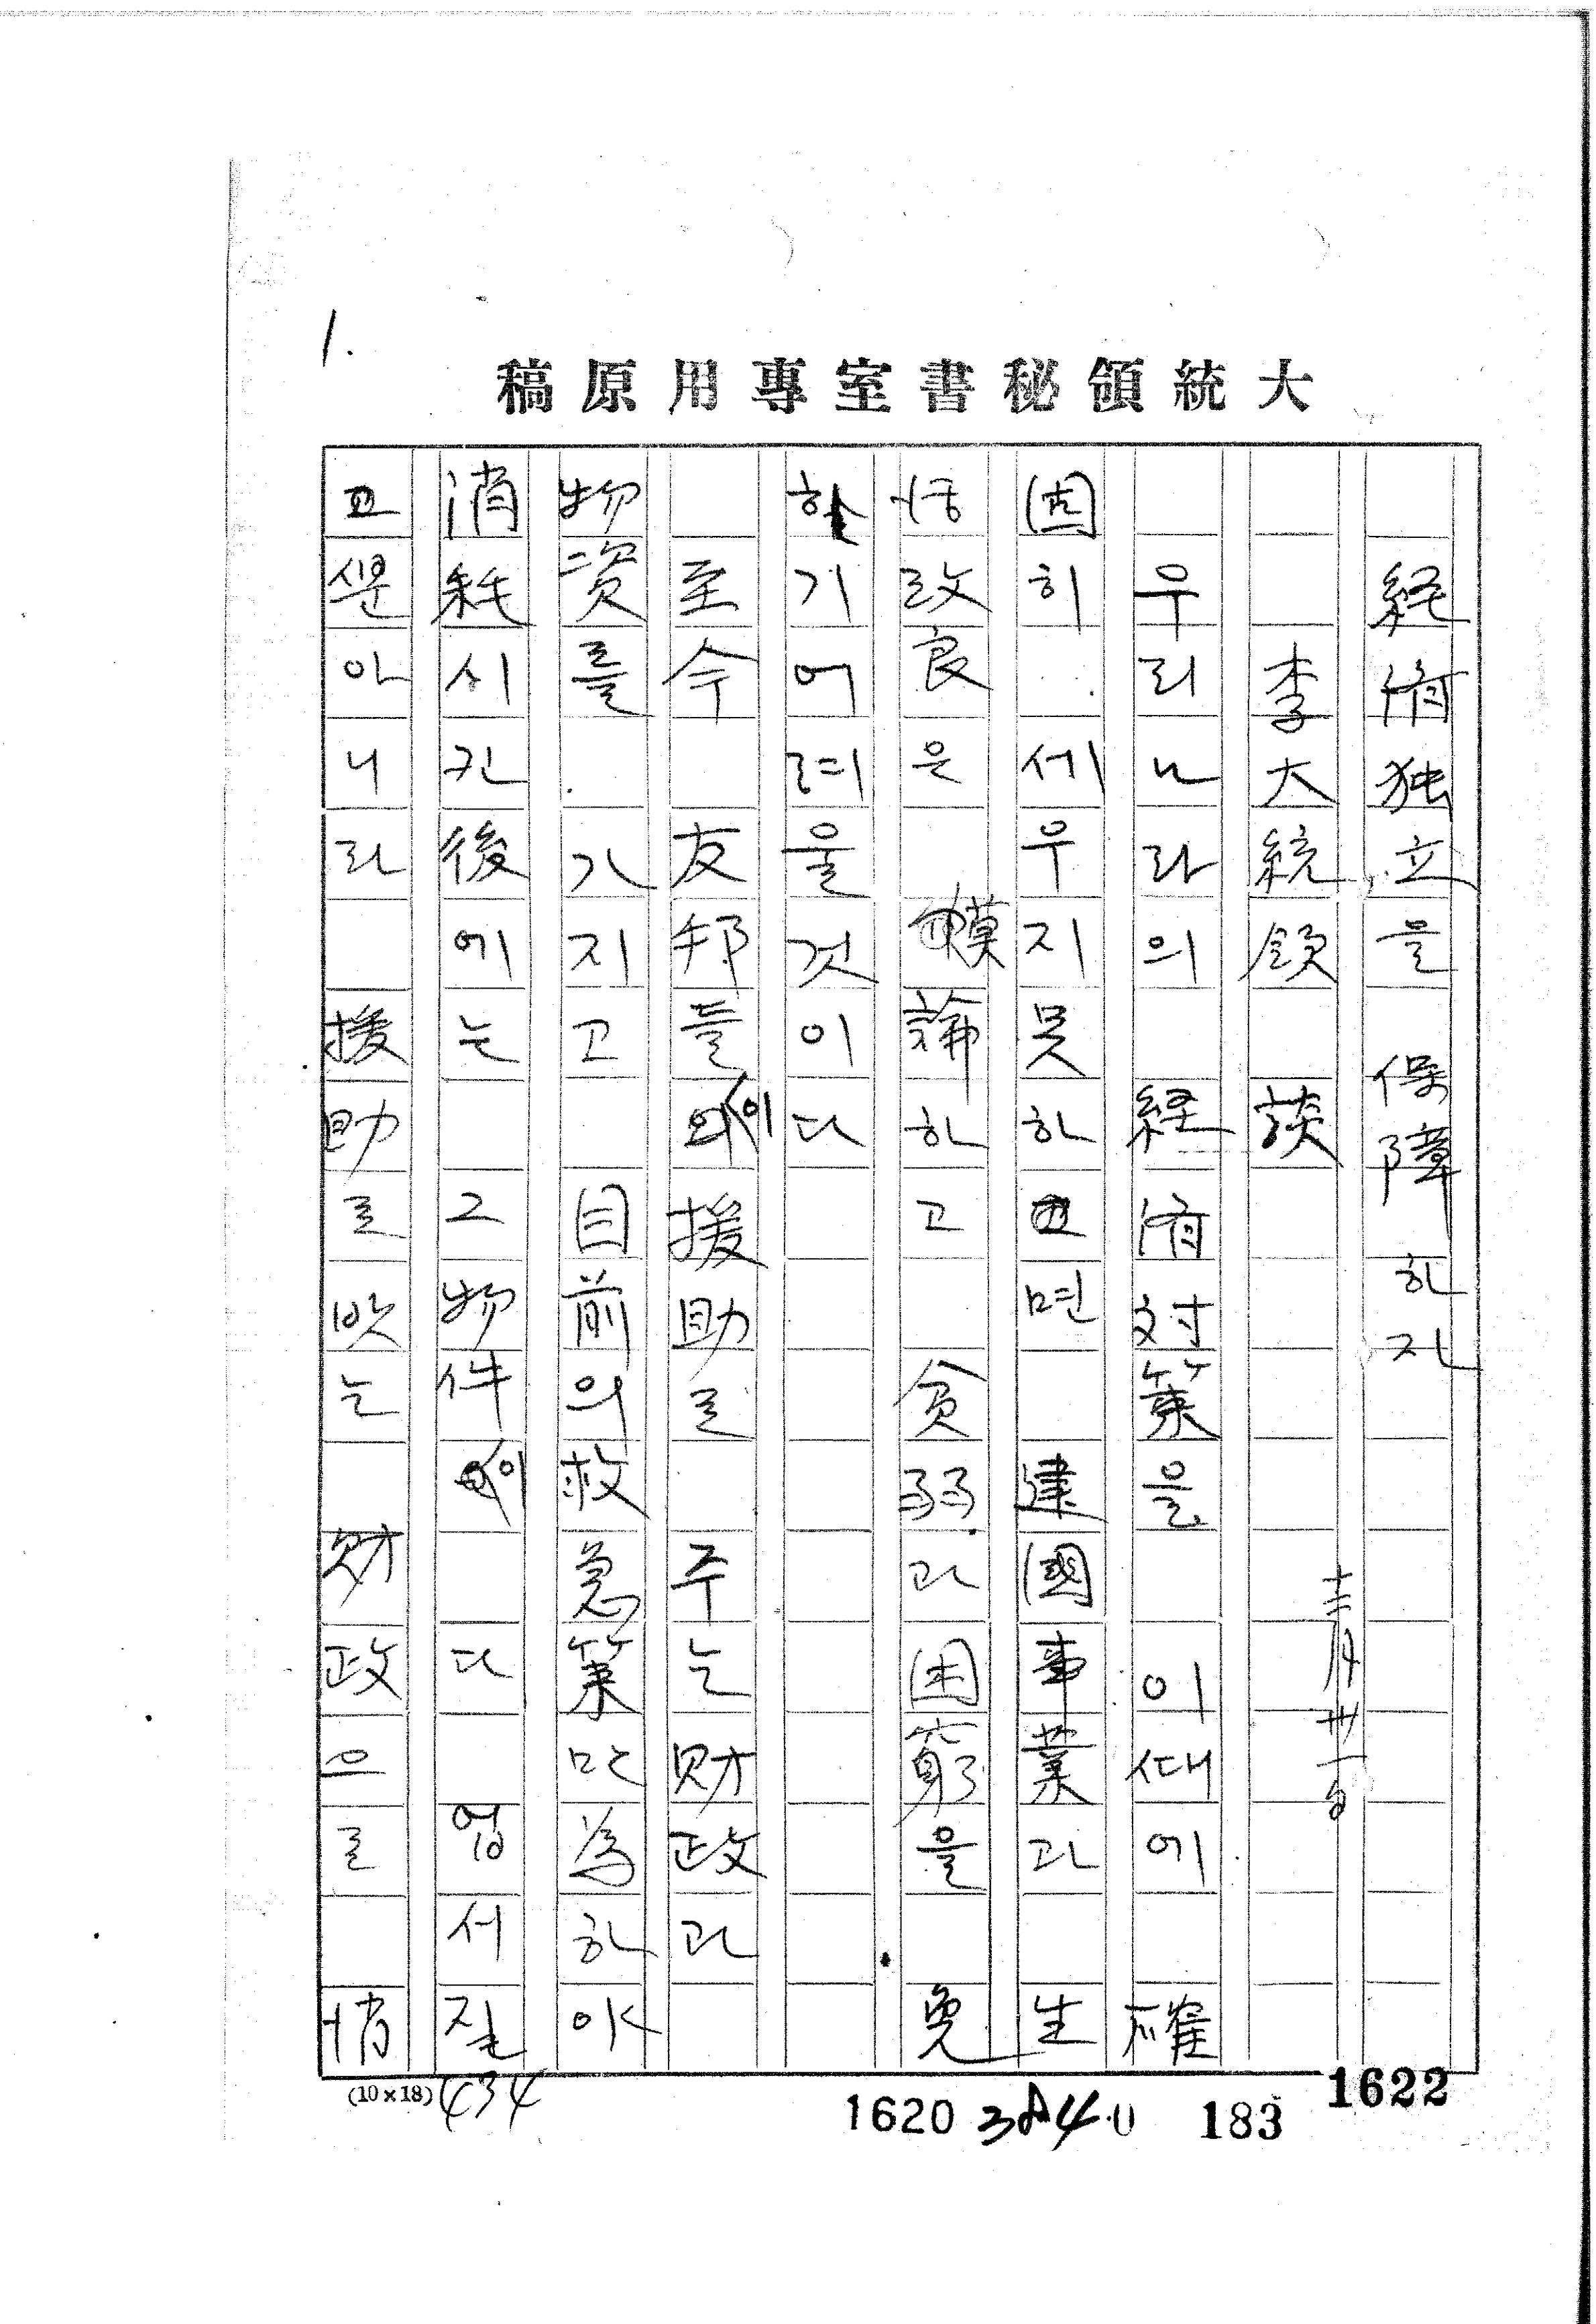 大統領秘書室專用原稿
1.
経済独立을 保障하자
李大統領 談 十二月卅一日
우리나라의 経済対策을 이ᄯᅢ에 確
固히 세우지못하고면 建國事業과 生
活改良은 莫論하고 貧弱과 困窮을 免
하기어례울것이다
至今 友邦들이 援助를 주는財政과
物資를 가지고 目前의救急策만為하야
消耗시킨後에는 그物件이 다 업서질
ᄲᅮᆫ아니라 援助를밧는 財政으로
(10×18)
434
1620
3840
183
1622